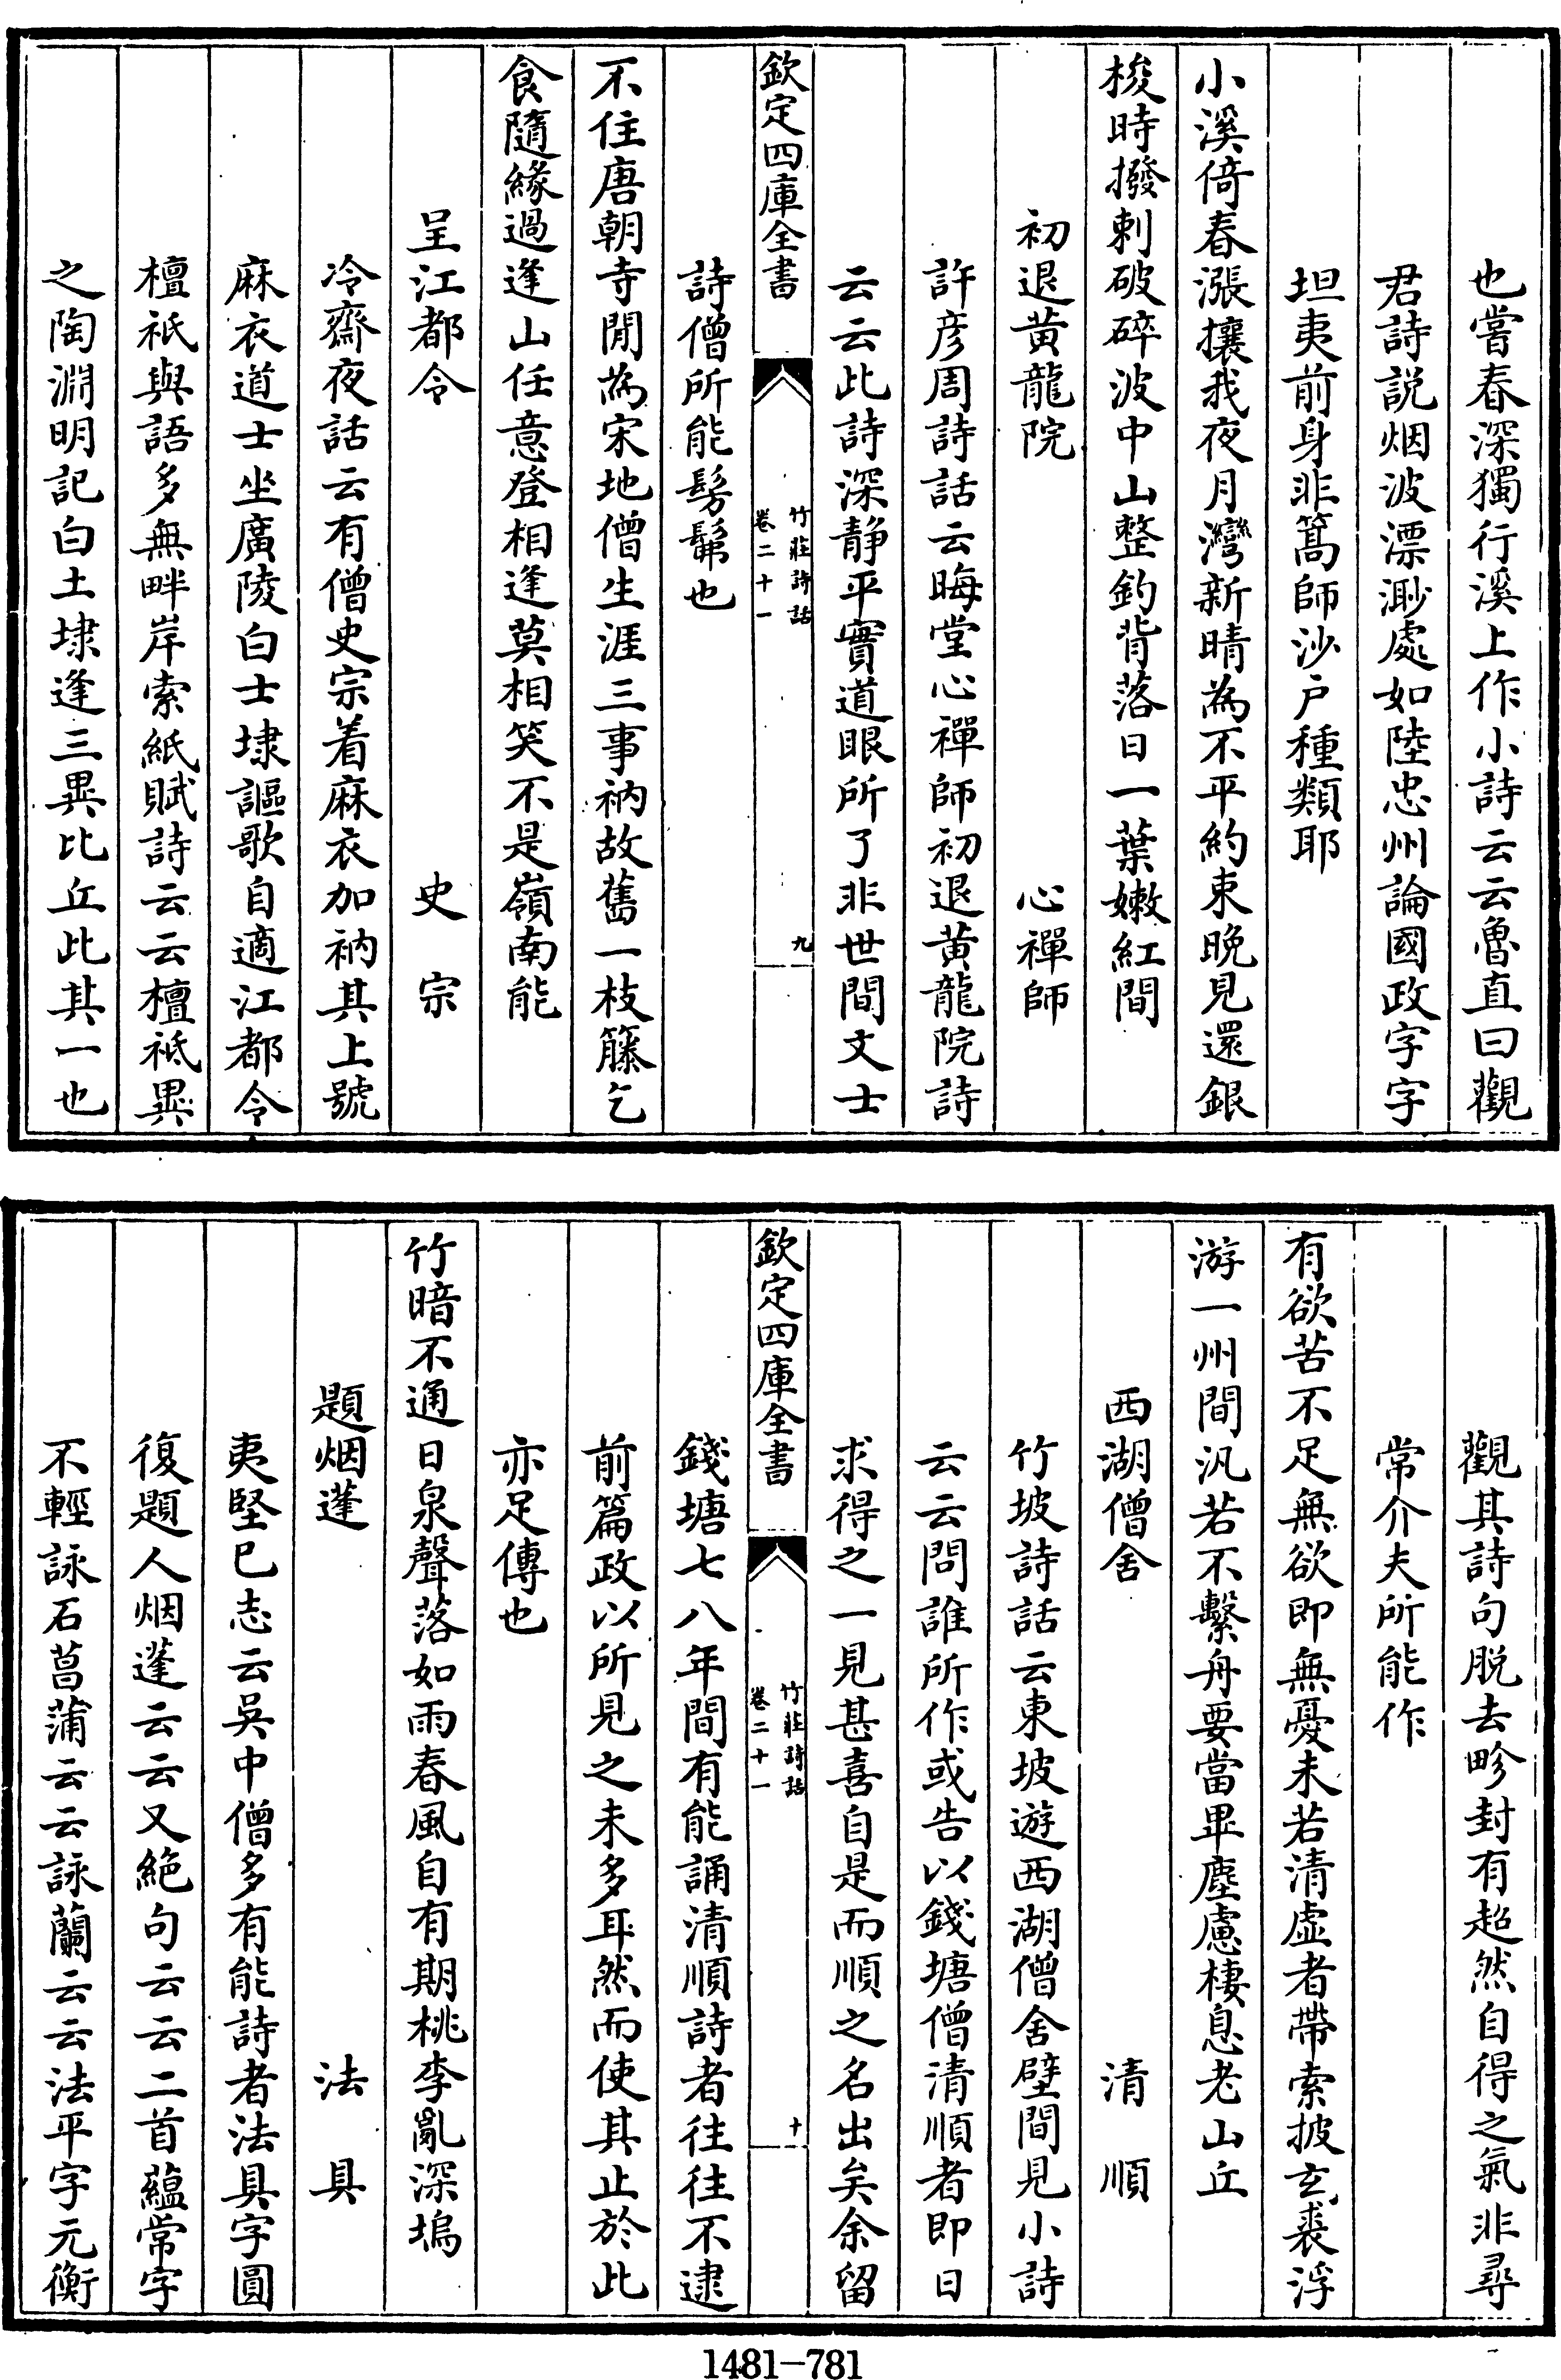 也嘗春深獨行溪上作小詩云云魯直曰觀
君詩説烟波漂渺處如陸忠州論國政字字
坦夷前身非篙師沙户種類耶
小溪倚春漲攘我夜月灣新晴為不平約束晚見還銀
梭時撥剌破碎波中山整釣背落日一葉嫩紅間
初退黄龍院 心禪師
許彦周詩話云晦堂心禪師初退黄龍院詩
云云此詩深静平實道眼所了非世間文士
欽定四庫全書 竹莊詩話 卷二十一 九
詩僧所能髣髴也
不住唐朝寺閒為宋地僧生涯三事衲故舊一枝籐乞
食隨緣過逢山任意登相逢莫相笑不是嶺南能
呈江都令 史宗
冷齋夜話云有僧史宗着麻衣加衲其上號
麻衣道士坐廣陵白士埭謳歌自適江都令
檀祗與語多無畔岸索紙賦詩云云檀祗異
之陶淵明記白土埭逢三異比丘此其一也
觀其詩句脱去畛封有超然自得之氣非尋
常介夫所能作
有欲苦不足無欲即無憂未若清虚者帶索披玄裘浮
游一州間汎若不繫舟要當畢塵慮棲息老山丘
西湖僧舍 清順
竹坡詩話云東坡遊西湖僧舍壁間見小詩
云云問誰所作或告以錢塘僧清順者即日
求得之一見甚喜自是而順之名出矣余留
欽定四庫全書 竹莊詩話 卷二十一 十
錢塘七八年間有能誦清順詩者往往不逮
前篇政以所見之未多耳然而使其止於此
亦足傳也
竹暗不通日泉聲落如雨春風自有期桃李亂深塢
題烟蓬 法具
夷堅巳志云吳中僧多有能詩者法具字圓
復題人烟蓬云云又絶句云云二首蘊常字
不輕詠石菖蒲云云詠蘭云云法平字元衡
1481-781